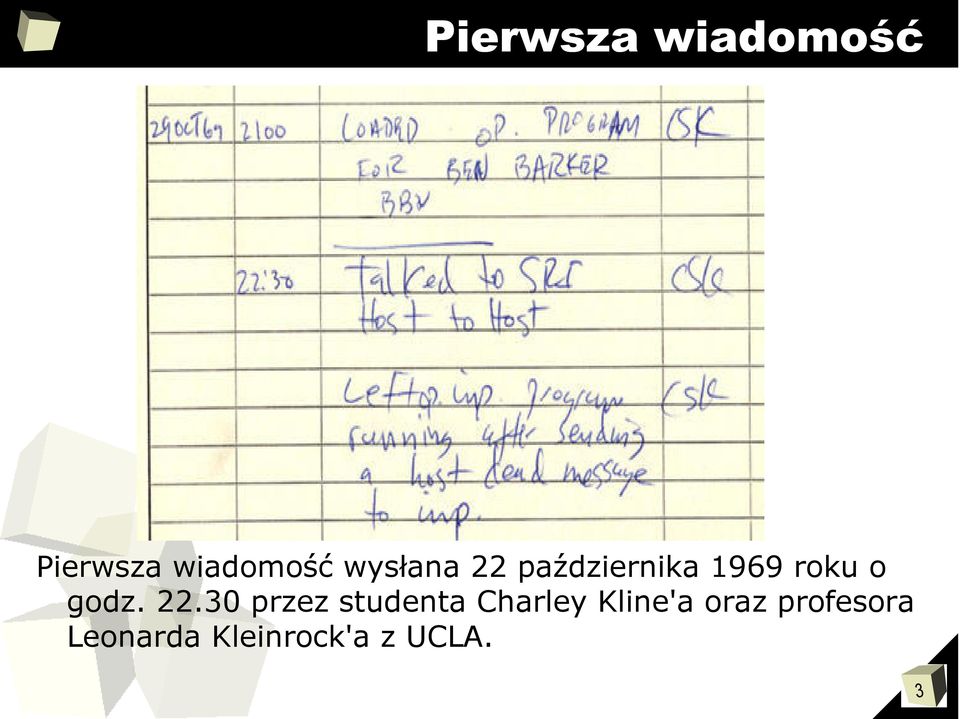 Pierwsza wiadomość
29OCT69 2100 LOADED OP. PROGRAM CSK
FOR BEN BARKER
BBN
22:30 Talked to SRI CSK
Host to Host
Left op. imp. program CSK
running after sending
a host dead message
to imp.
Pierwsza wiadomość wysłana 22 października 1969 roku o
godz. 22.30 przez studenta Charley Kline'a oraz profesora
Leonarda Kleinrock'a z UCLA.
3